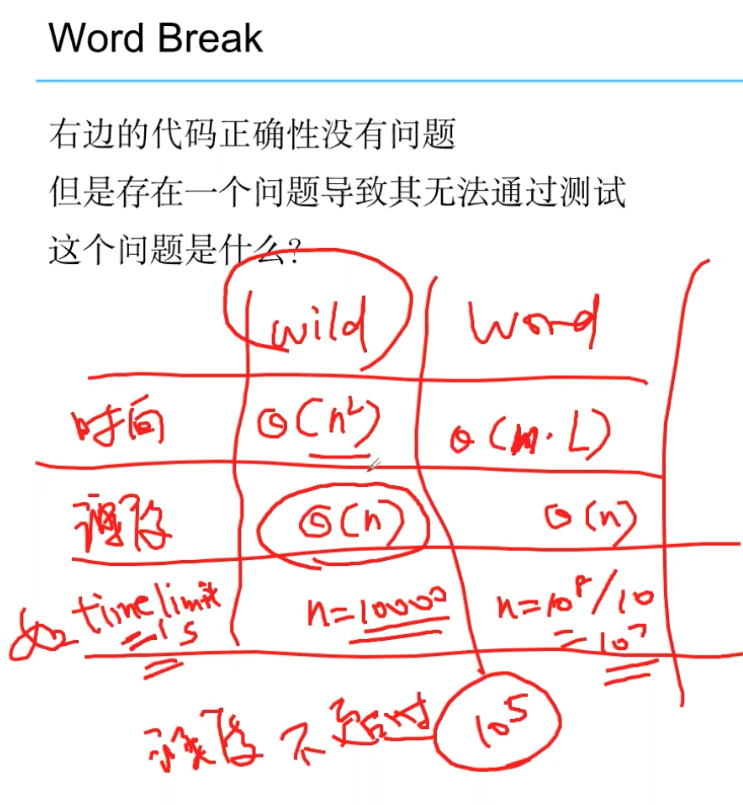 Word Break
右边的代码正确性没有问题
但是存在一个问题导致其无法通过测试
这个问题是什么?
wild word
时间 O(n²) O(m·L)
深度 O(n) O(n)
如 time limit = 1s n=10000 n=10⁸/10 = 10⁷
深度 不超过 10⁵